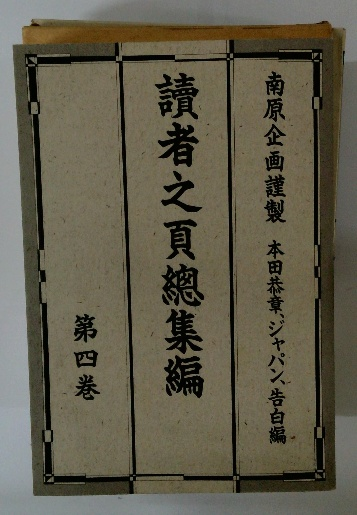 南原企画謹製 本田恭章、ジャパン、告白編
讀者之頁總集編
第四巻